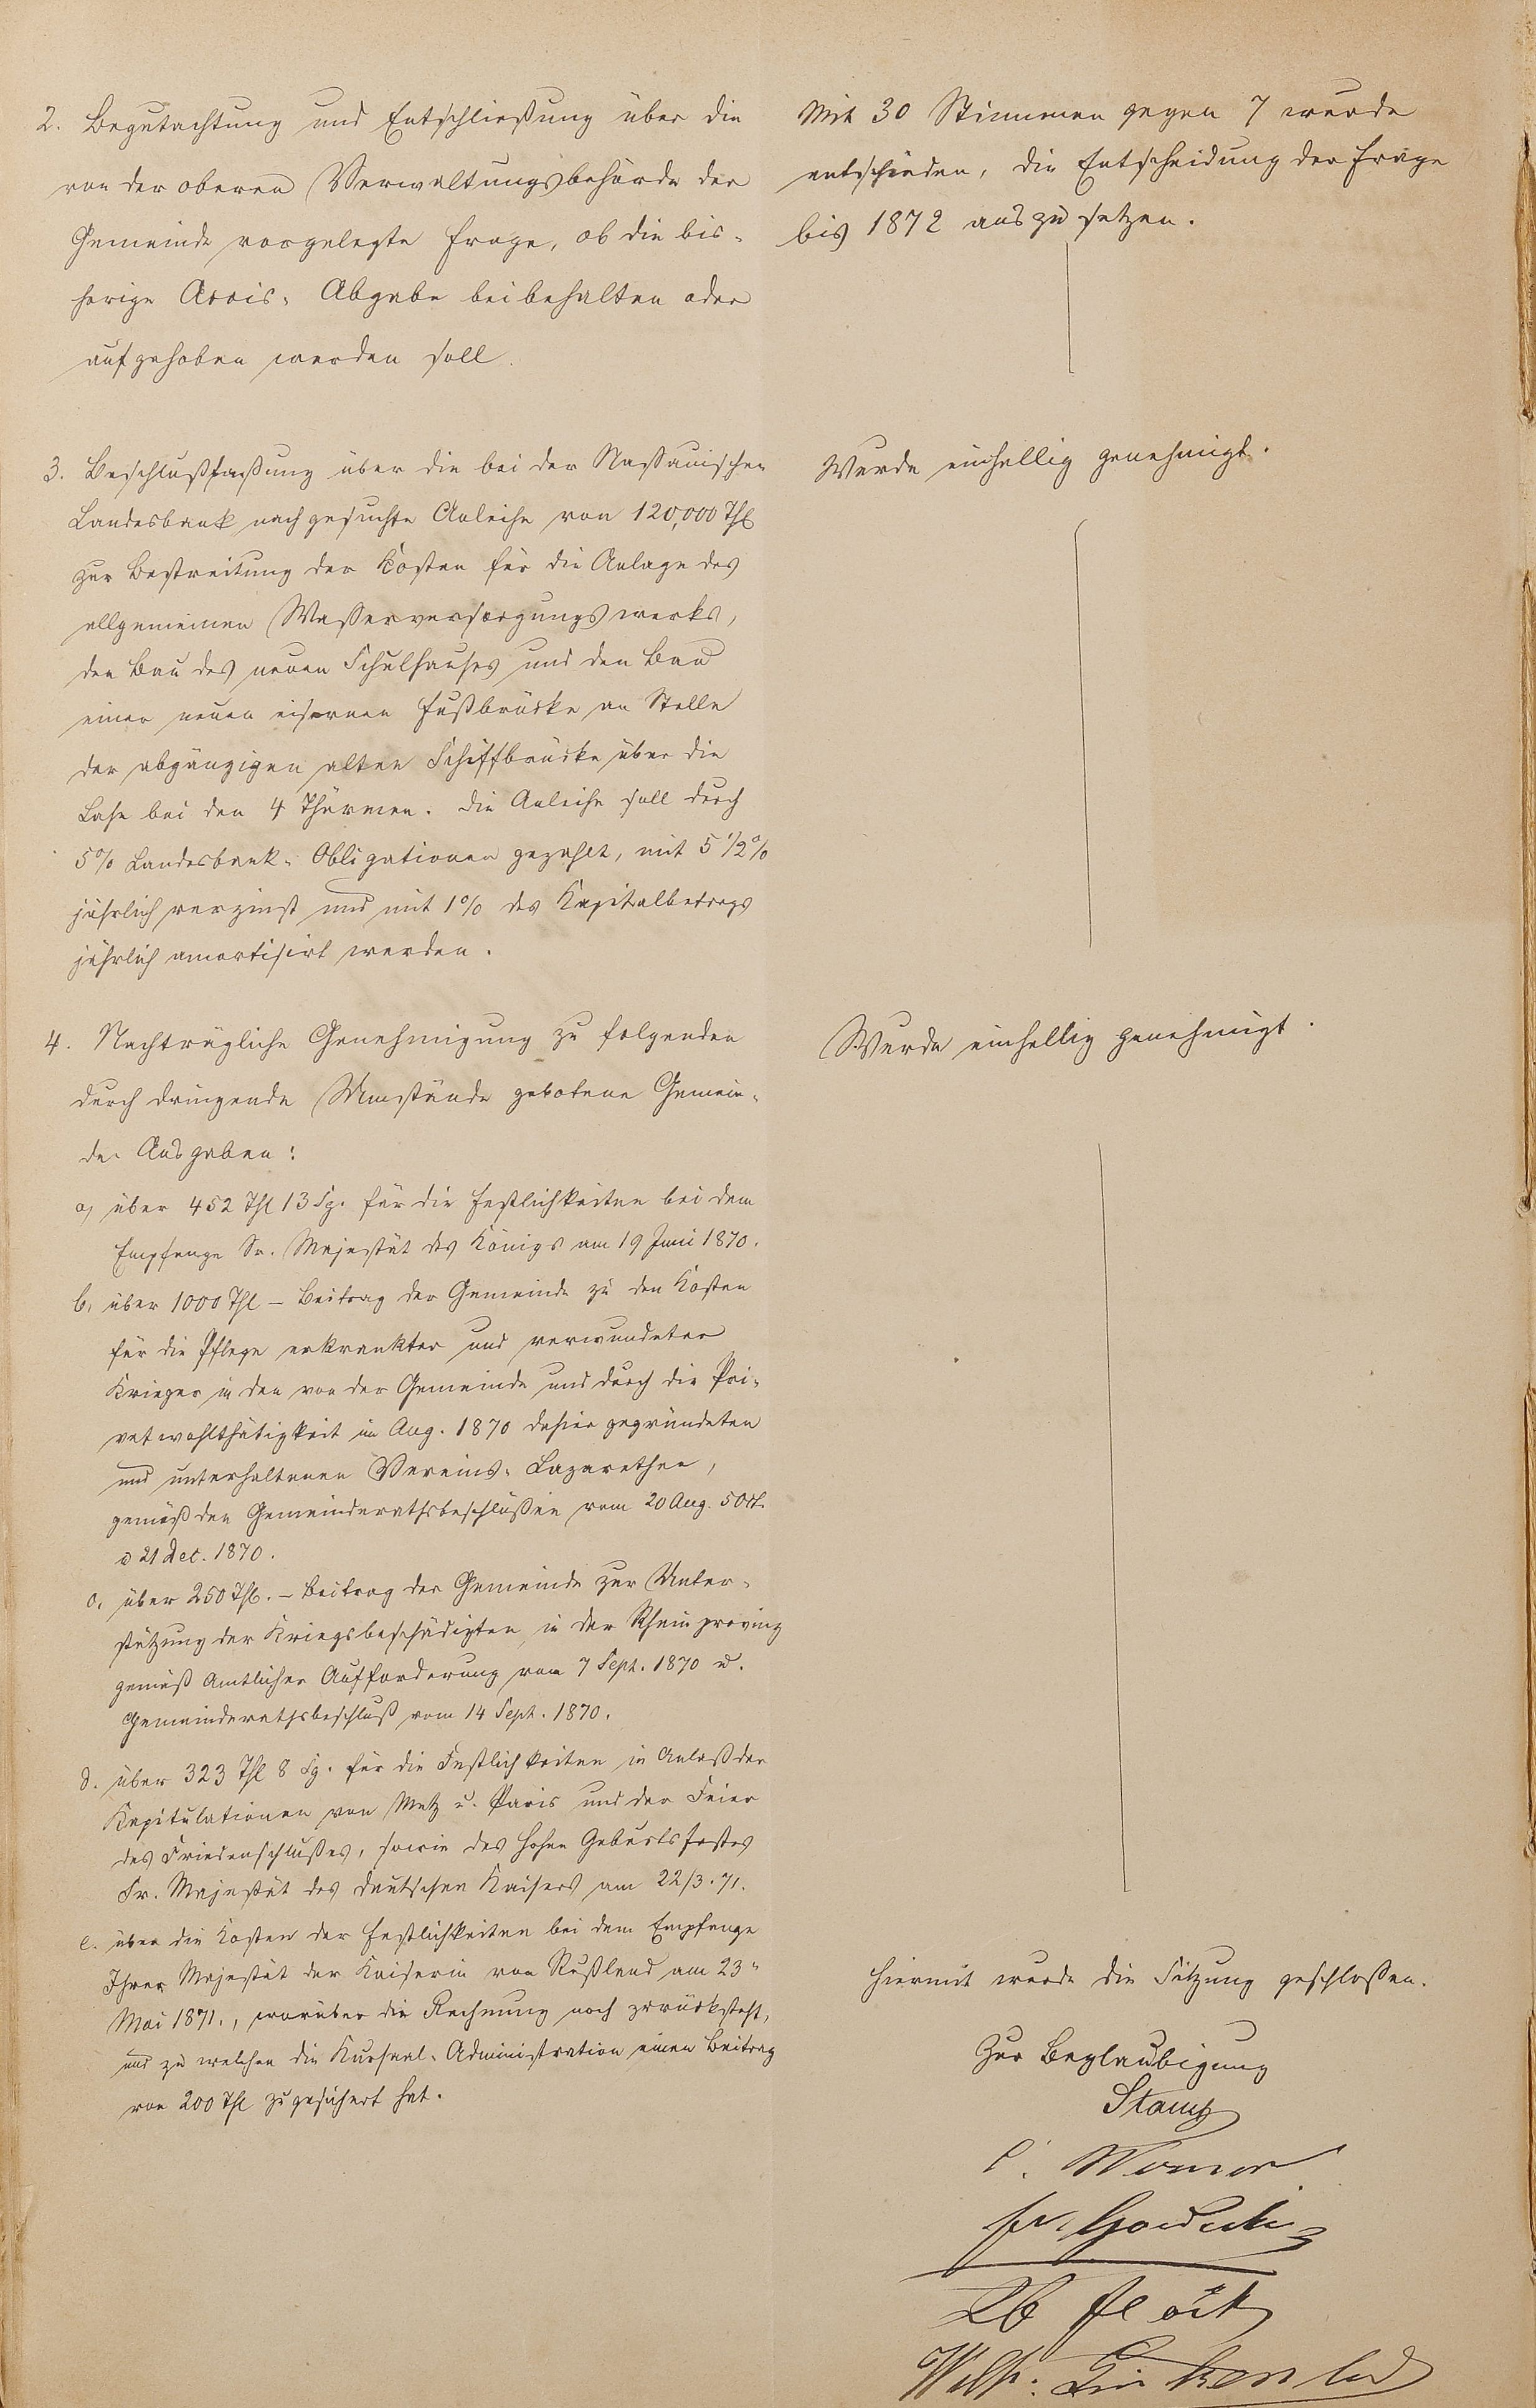 2. Begutachtung und Entschließung über die
von der oberen Verwaltungsbehörde der
Gemeinde vorgelegte Frage, ob die bis-
herige Accis-Abgabe beibehalten oder
aufgehoben werden soll.
Mit 30 Stimmen gegen 7 wurde
entschieden, die Entscheidung der Frage
bis 1872 auszusetzen.
3. Beschlußfaßung über die bei der Naßauischen
Landesbank nachgesuchte Anleihe von 120,000 Thl
zur Bestreitung der Kosten für die Anlage des
allgemeinen Waßerversorgungswerks,
den Bau des neuen Schulhauses und den Bau
einer neuen eisernen Fußbrücke an Stelle
der abgängigen alten Schiffbrücke über die
Lahn bei den 4 Thürmen. Die Anleihe soll durch
5% Landesbank-Obligationen gezahlt, mit 5 1/2%
jährlich verzinst und mit 1% des Kapitalbetrags
jährlich amortisirt werden.
Wurde einhellig genehmigt.
4. Nachträgliche Genehmigung zu folgenden
durch dringende Umstände gebotene Gemein-
de-Ausgaben:
Wurde einhellig genehmigt.
a, über 452 Thl 13 Sg. für die Festlichkeiten bei dem
Empfange Sr. Majestät des Königs am 19 Juni 1870.
b, über 1000 Thl – Beitrag der Gemeinde zu den Kosten
für die Pflege erkrankter und verwundeter
Krieger in den von der Gemeinde und durch die Pri-
vatwohlthätigkeit im Aug. 1870 dahier gegründeten
und unterhaltenen Vereins-Lazarethen,
gemäß den Gemeinderathsbeschlüßen vom 20 Aug. 5 Oct.
u 21 Dec. 1870.
c, über 250 Thl. – Beitrag der Gemeinde zur Unter-
stützung der Kriegsbeschädigten in der Rheinprovinz
gemäß Amtlicher Aufforderung vom 7 Sept. 1870 u.
Gemeinderathsbeschluß vom 14 Sept. 1870.
d. über 323 Thl 8 Sg. für die Festlichkeiten in Anlaß der
Kapitulationen von Metz u. Paris und der Feier
des Friedenschlußes, sowie des hohen Geburtsfestes
Sr. Majestät des deutschen Kaisers am 22/3.71.
e. über die Kosten der Festlichkeiten bei dem Empfange
Ihrer Majestät der Kaiserin von Rußland am 23"
Mai 1871., worüber die Rechnung noch zurücksteht,
und zu welchen die Kursaal-Administration einen Beitrag
von 200 Thl zugesichert hat.
Hiermit wurde die Sitzung geschloßen.
Zur Beglaubigung
Wilh: